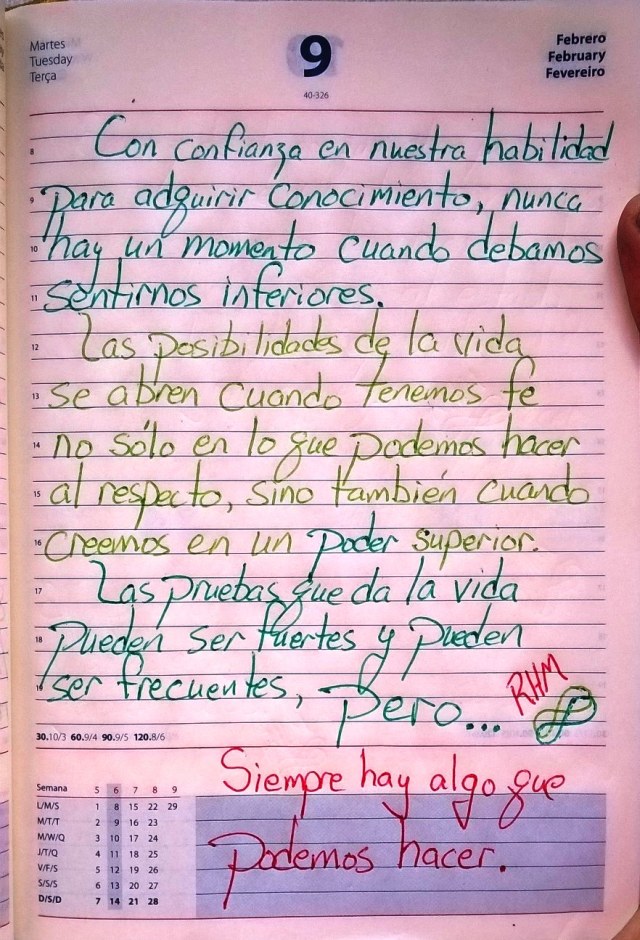 Martes
Tuesday
Terça
9
40-326
Febrero
February
Fevereiro
8 Con confianza en nuestra habilidad
9 para adquirir conocimiento, nunca
10 hay un momento cuando debamos
11 sentirnos inferiores.
12 Las posibilidades de la vida
13 se abren cuando tenemos fe
14 no sólo en lo que podemos hacer
15 al respecto, sino también cuando
16 creemos en un poder superior.
17 Las pruebas que da la vida
18 pueden ser fuertes y pueden
19 ser frecuentes, pero...
RHM
30.10/3 60.9/4 90.9/5 120.8/6
Siempre hay algo que
podemos hacer.
Semana 5 6 7 8 9
L/M/S 1 8 15 22 29
M/T/T 2 9 16 23
M/W/Q 3 10 17 24
J/T/Q 4 11 18 25
V/F/S 5 12 19 26
S/S/S 6 13 20 27
D/S/D 7 14 21 28